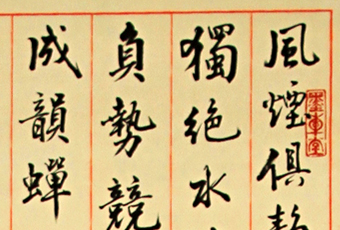 風煙俱靜
獨絕水
負勢競
成韻蟬